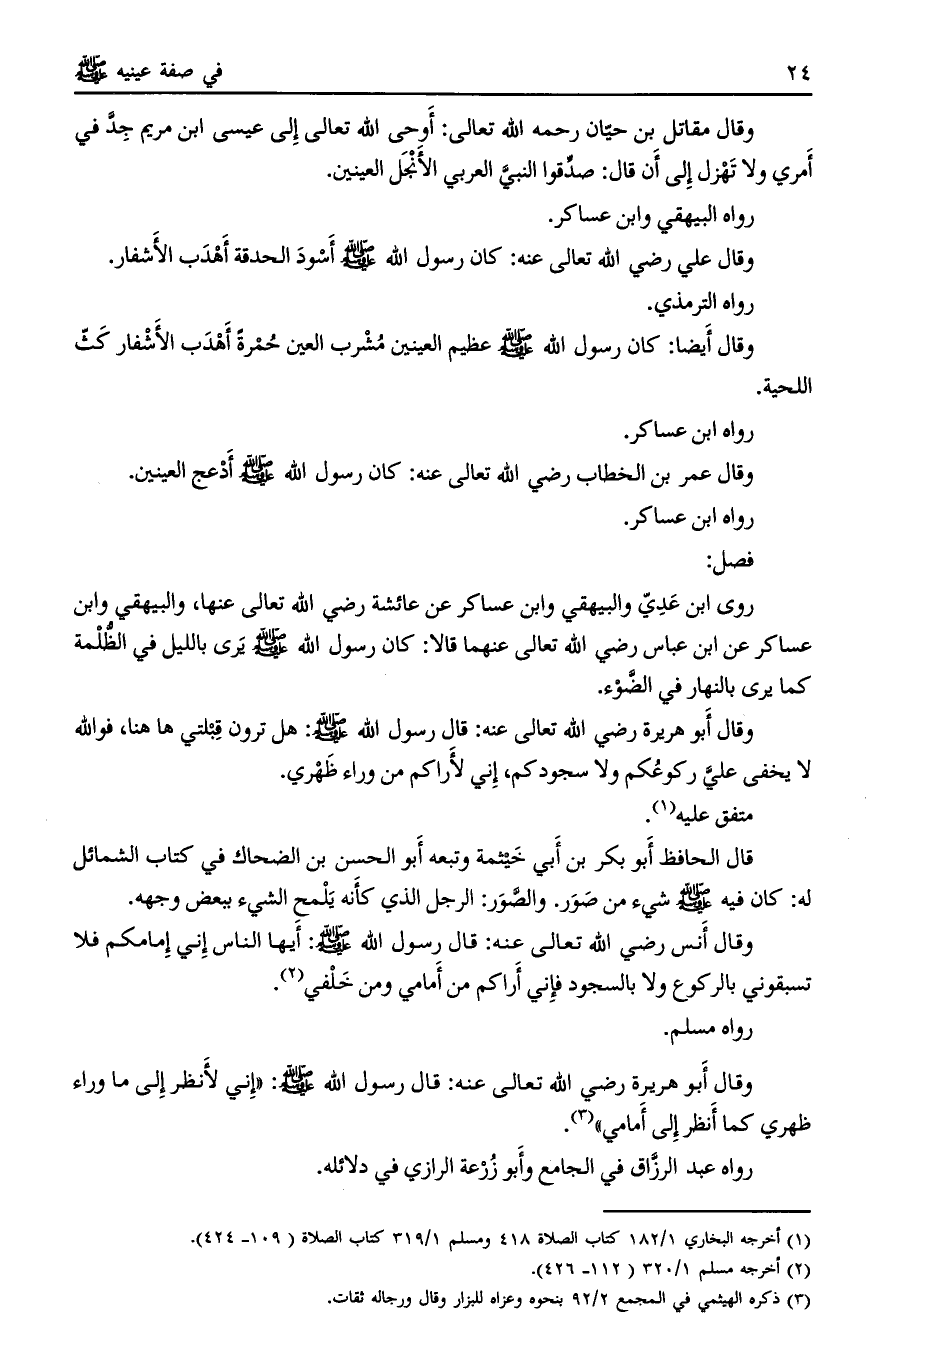 ٢٤ في صفة عينيه ﷺ
وقال مقاتل بن حيّان رحمه الله تعالى: أَوحى الله تعالى إِلى عيسى ابن مريم جِدَّ في
أَمري ولا تَهْزل إِلى أَن قال: صدِّقوا النبيَّ العربي الأَنْجَل العينين.
رواه البيهقي وابن عساكر.
وقال علي رضي الله تعالى عنه: كان رسول الله ﷺ أَسْودَ الحدقة أَهْدَب الأَشفار.
رواه الترمذي.
وقال أَيضا: كان رسول الله ﷺ عظيم العينين مُشْرب العين حُمْرةً أَهْدَب الأَشْفار كَثّ
اللحية.
رواه ابن عساكر.
وقال عمر بن الخطاب رضي الله تعالى عنه: كان رسول الله ﷺ أَدْعج العينين.
رواه ابن عساكر.
فصل:
روى ابن عَدِيّ والبيهقي وابن عساكر عن عائشة رضي الله تعالى عنها، والبيهقي وابن
عساكر عن ابن عباس رضي الله تعالى عنهما قالا: كان رسول الله ﷺ يَرى بالليل في الظُّلْمة
كما يرى بالنهار في الضَّوْء.
وقال أَبو هريرة رضي الله تعالى عنه: قال رسول الله ﷺ: هل ترون قِبْلتي ها هنا، فوالله
لا يخفى عليَّ ركوعُكم ولا سجودكم، إِني لأَراكم من وراء ظَهْري.
متفق عليه(١).
قال الحافظ أَبو بكر بن أَبي خَيْثمة وتبعه أَبو الحسن بن الضحاك في كتاب الشمائل
له: كان فيه ﷺ شيء من صَوَر. والصَّوَر: الرجل الذي كأَنه يَلْمح الشيء ببعض وجهه.
وقال أَنس رضي الله تعالى عنه: قال رسول الله ﷺ: أَيها الناس إِني إِمامكم فلا
تسبقوني بالركوع ولا بالسجود فإِني أَراكم من أَمامي ومن خَلْفي(٢).
رواه مسلم.
وقال أَبو هريرة رضي الله تعالى عنه: قال رسول الله ﷺ: «إِني لأَنظر إِلى ما وراء
ظهري كما أَنظر إِلى أَمامي»(٣).
رواه عبد الرزَّاق في الجامع وأَبو زُرْعة الرازي في دلائله.
(١) أخرجه البخاري ١٨٢/١ كتاب الصلاة ٤١٨ ومسلم ٣١٩/١ كتاب الصلاة ( ١٠٩- ٤٢٤).
(٢) أخرجه مسلم ٣٢٠/١ ( ١١٢- ٤٢٦).
(٣) ذكره الهيثمي في المجمع ٩٢/٢ بنحوه وعزاه للبزار وقال ورجاله ثقات.